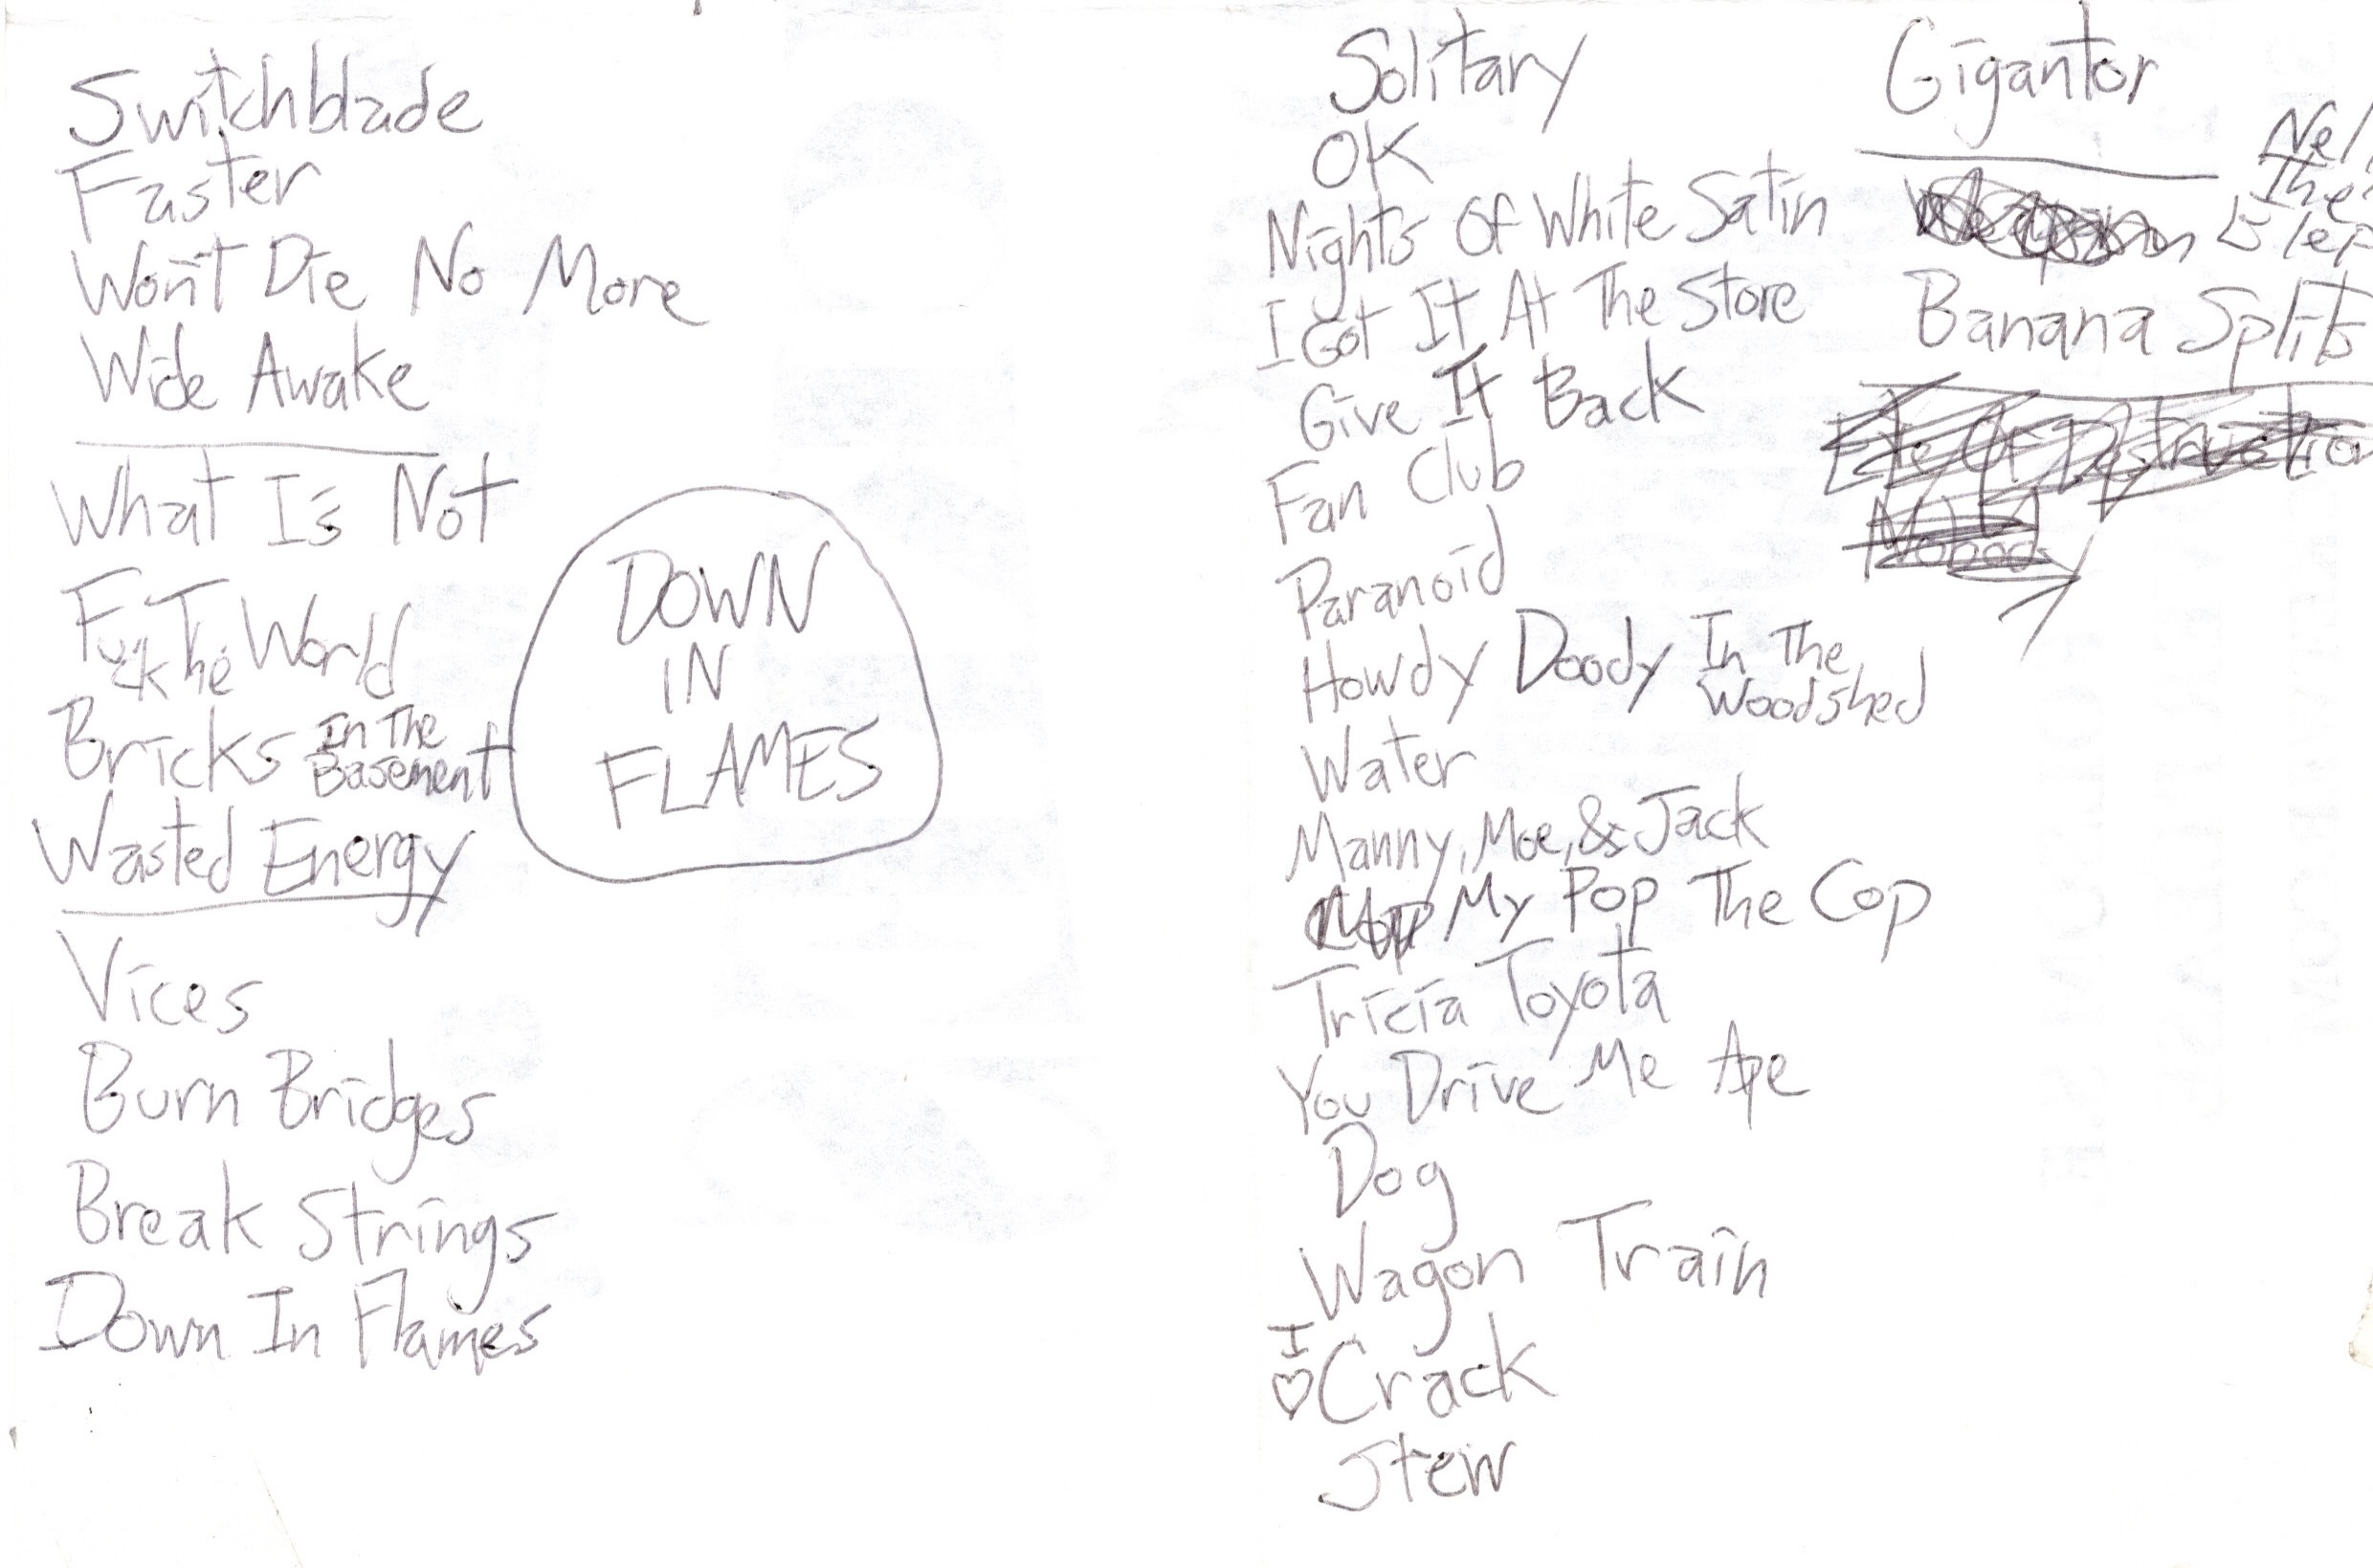 Switchblade
Faster
Won't Die No More
Wide Awake
What Is Not
Fuck The World
Bricks In The
Basement
Wasted Energy
Vices
Burn Bridges
Break Strings
Down In Flames
DOWN
IN
FLAMES
Solitary
OK
Nights Of White Satin
I Got It At The Store
Give It Back
Fan Club
Paranoid
Howdy Doody In The
Woodshed
Water
Manny, Moe, & Jack
My Pop The Cop
Tricia Toyota
You Drive Me Ape
Dog
Wagon Train
I
♡ Crack
Stew
Gigantor
Banana Splits
Of Destruction
Nobody